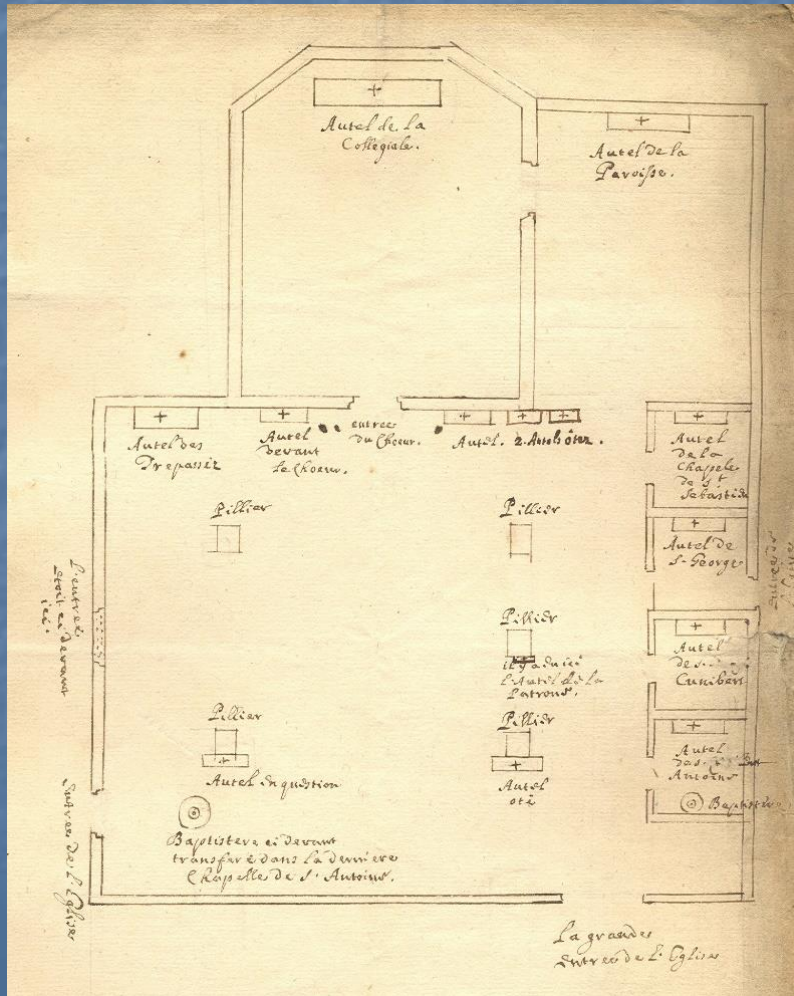 Autel de la
Collegiale.
Autel de la
Paroisse.
Autel des
Trepassez
Autel
devant
le Choeur.
entree
du Choeur.
Autel.
2. Autels ôtez.
Autel
de la
Chapele
de St
Sebastien
Pillier
Pillier
Autel de
S. George
L'entree
etoit ci devant
ici.
Pillier
il y a eu ici
l'Autel de la
Patrone.
Autel
de S.
Cunibert
Pillier
Autel en question
Pillier
Autel
oté
Autel
de S.
Antoine
Baptistere
Entree de l'Eglise
Baptistere ci devant
transferé dans la derniere
Chapelle de S. Antoine.
La grande
entree de l'Eglise